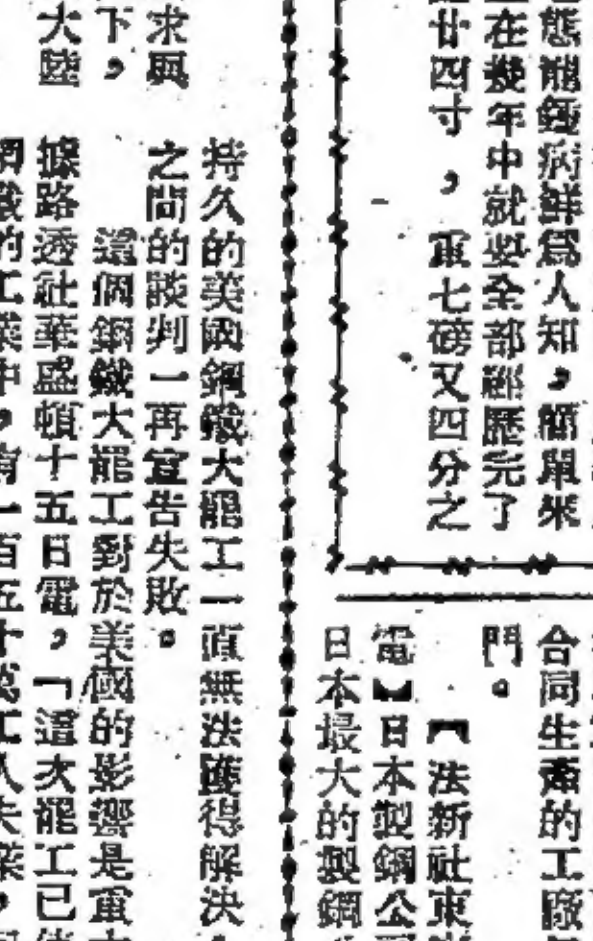 態龍鍾病鮮爲人知，簡單來
在幾年中就要全部經歷完了
廿四寸，重七磅又四分之
合同生產的工廠
門。
【法新社東
電】日本製鋼公
日本最大的製鋼
持久的美國鋼鐵大罷工一直無法獲得解決，
之間的談判一再宣告失敗。
這個鋼鐵大罷工對於美國的影響是重大
據路透社華盛頓十五日電，「這次罷工已使
鋼鐵的工業中，有一百五十萬工人失業，
求與
下，
大陸